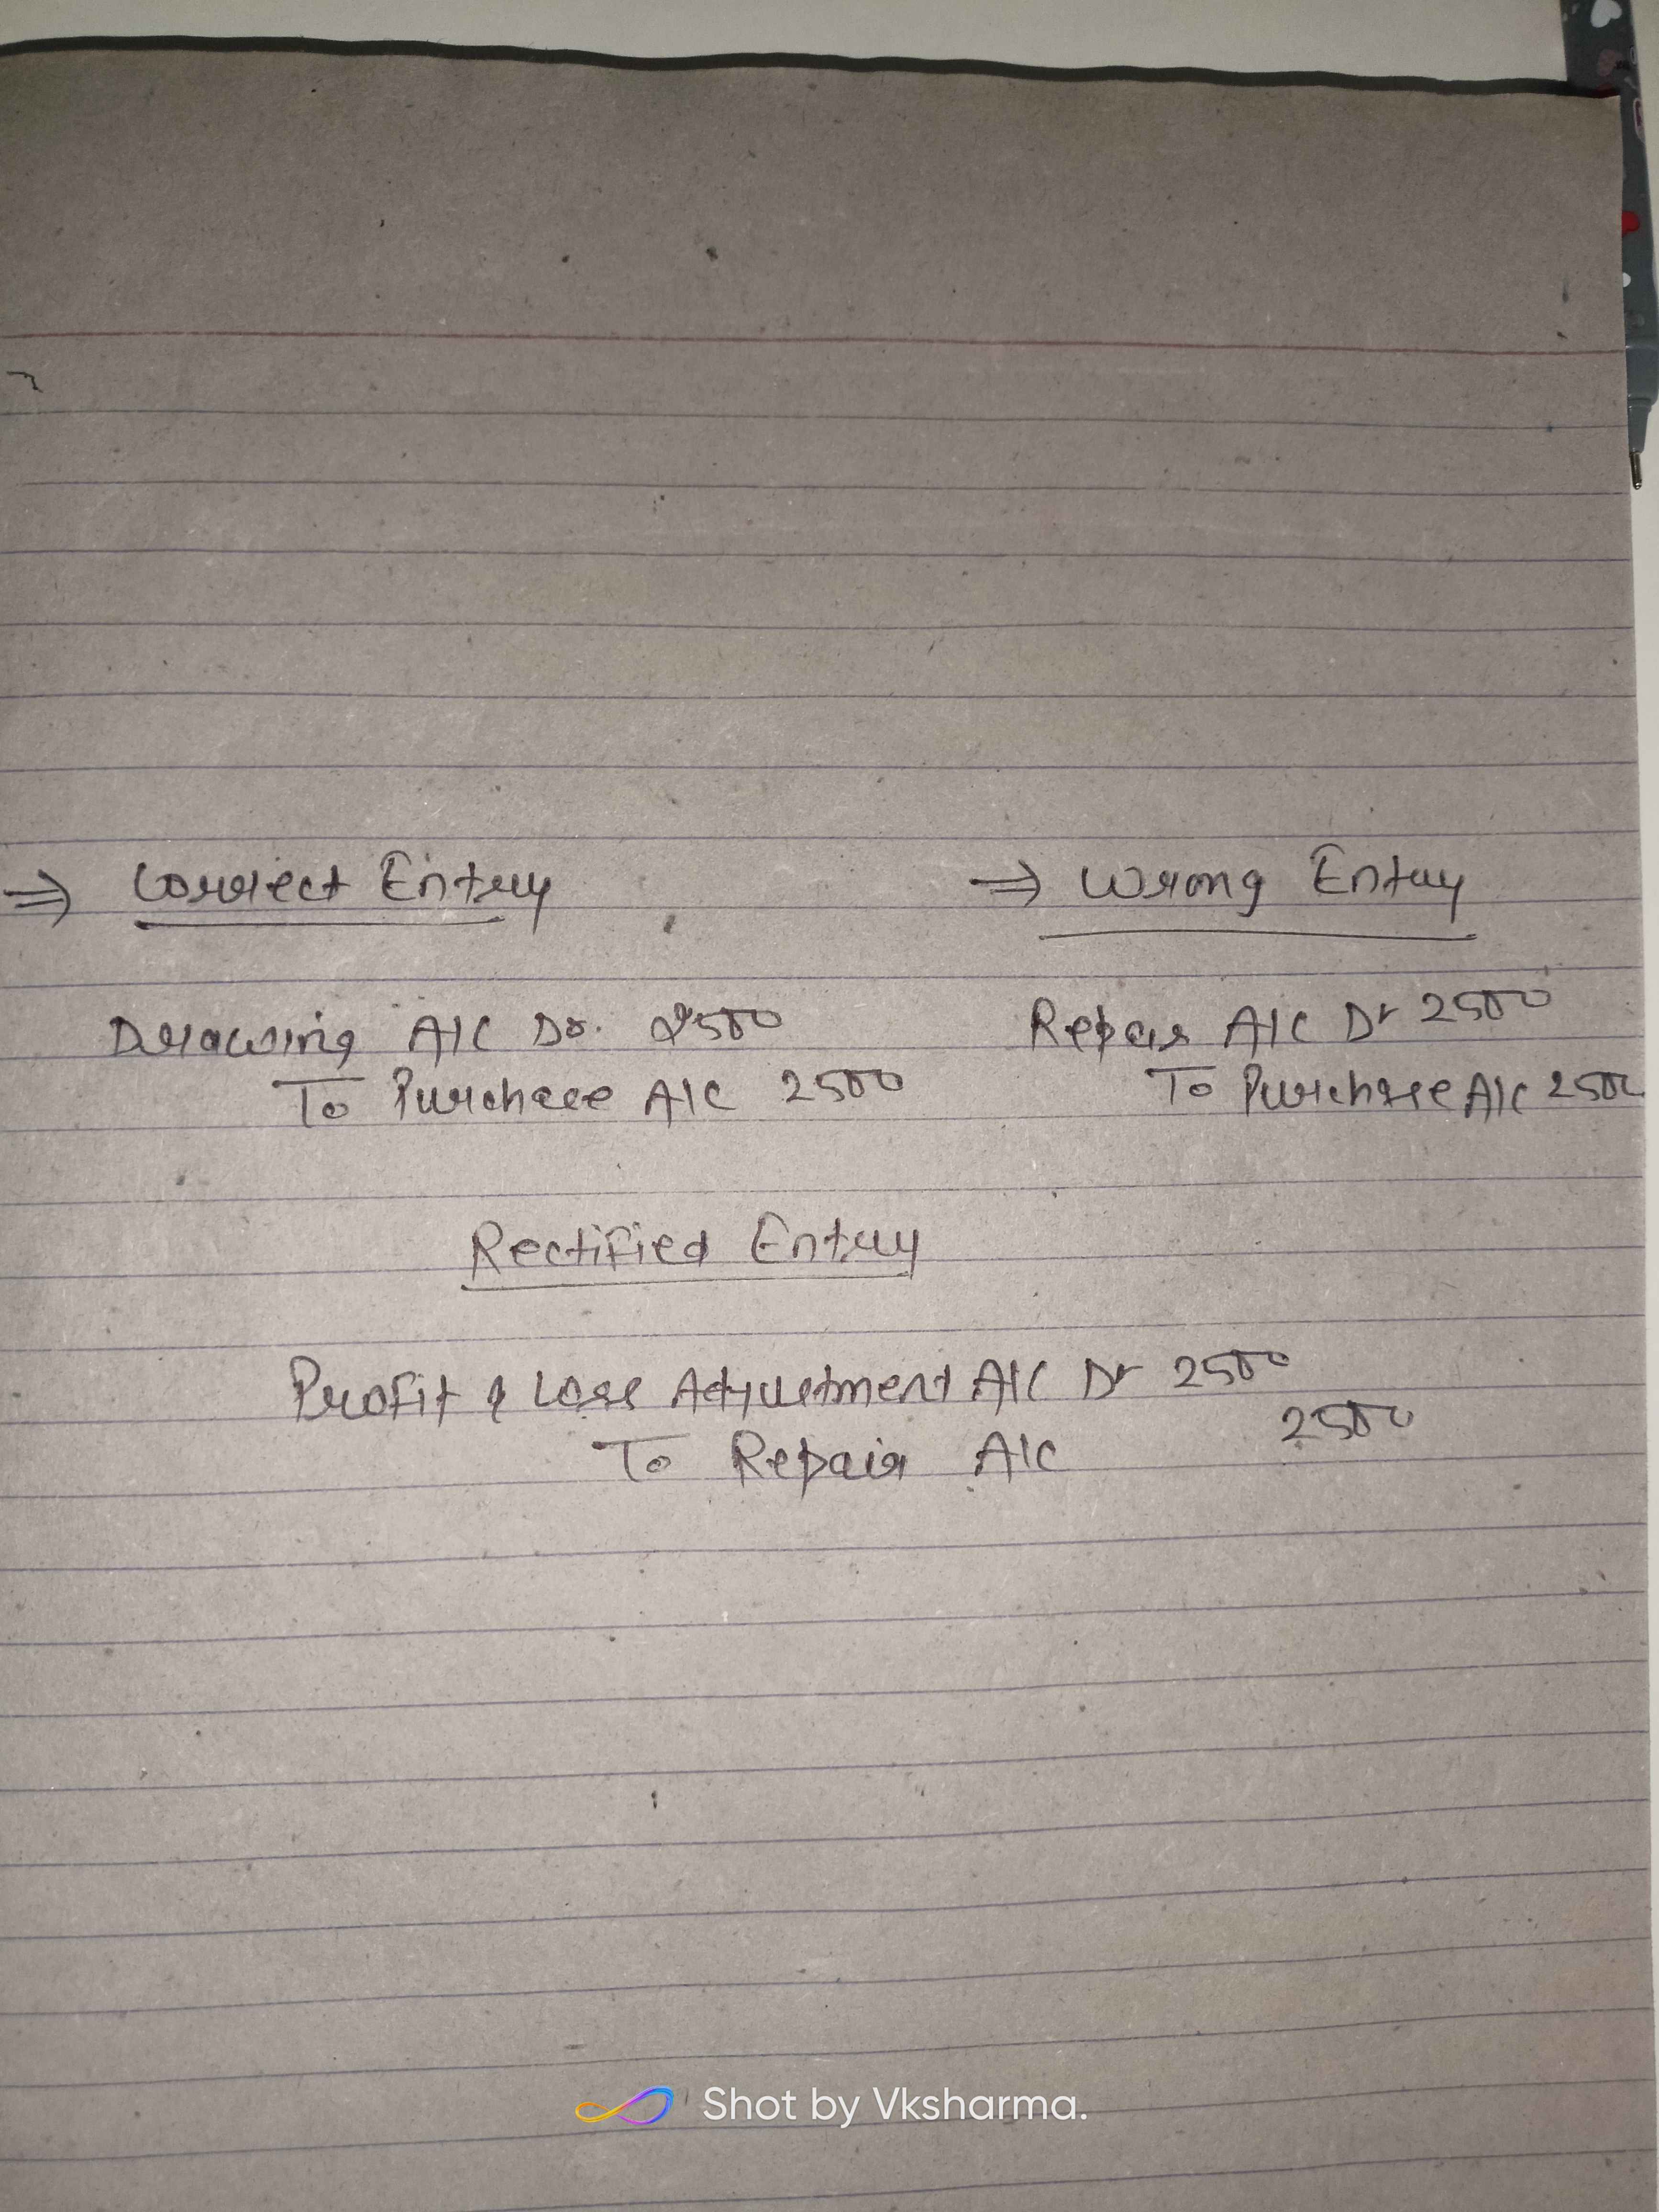 ⇒ Correct Entry
⇒ Wrong Entry
Drawing A/C Dr. 2500
To Purchase A/C 2500
Repair A/C Dr 2500
To Purchase A/C 2500
Rectified Entry
Profit & Loss Adjustment A/C Dr 2500
To Repair A/C 2500
Shot by Vksharma.